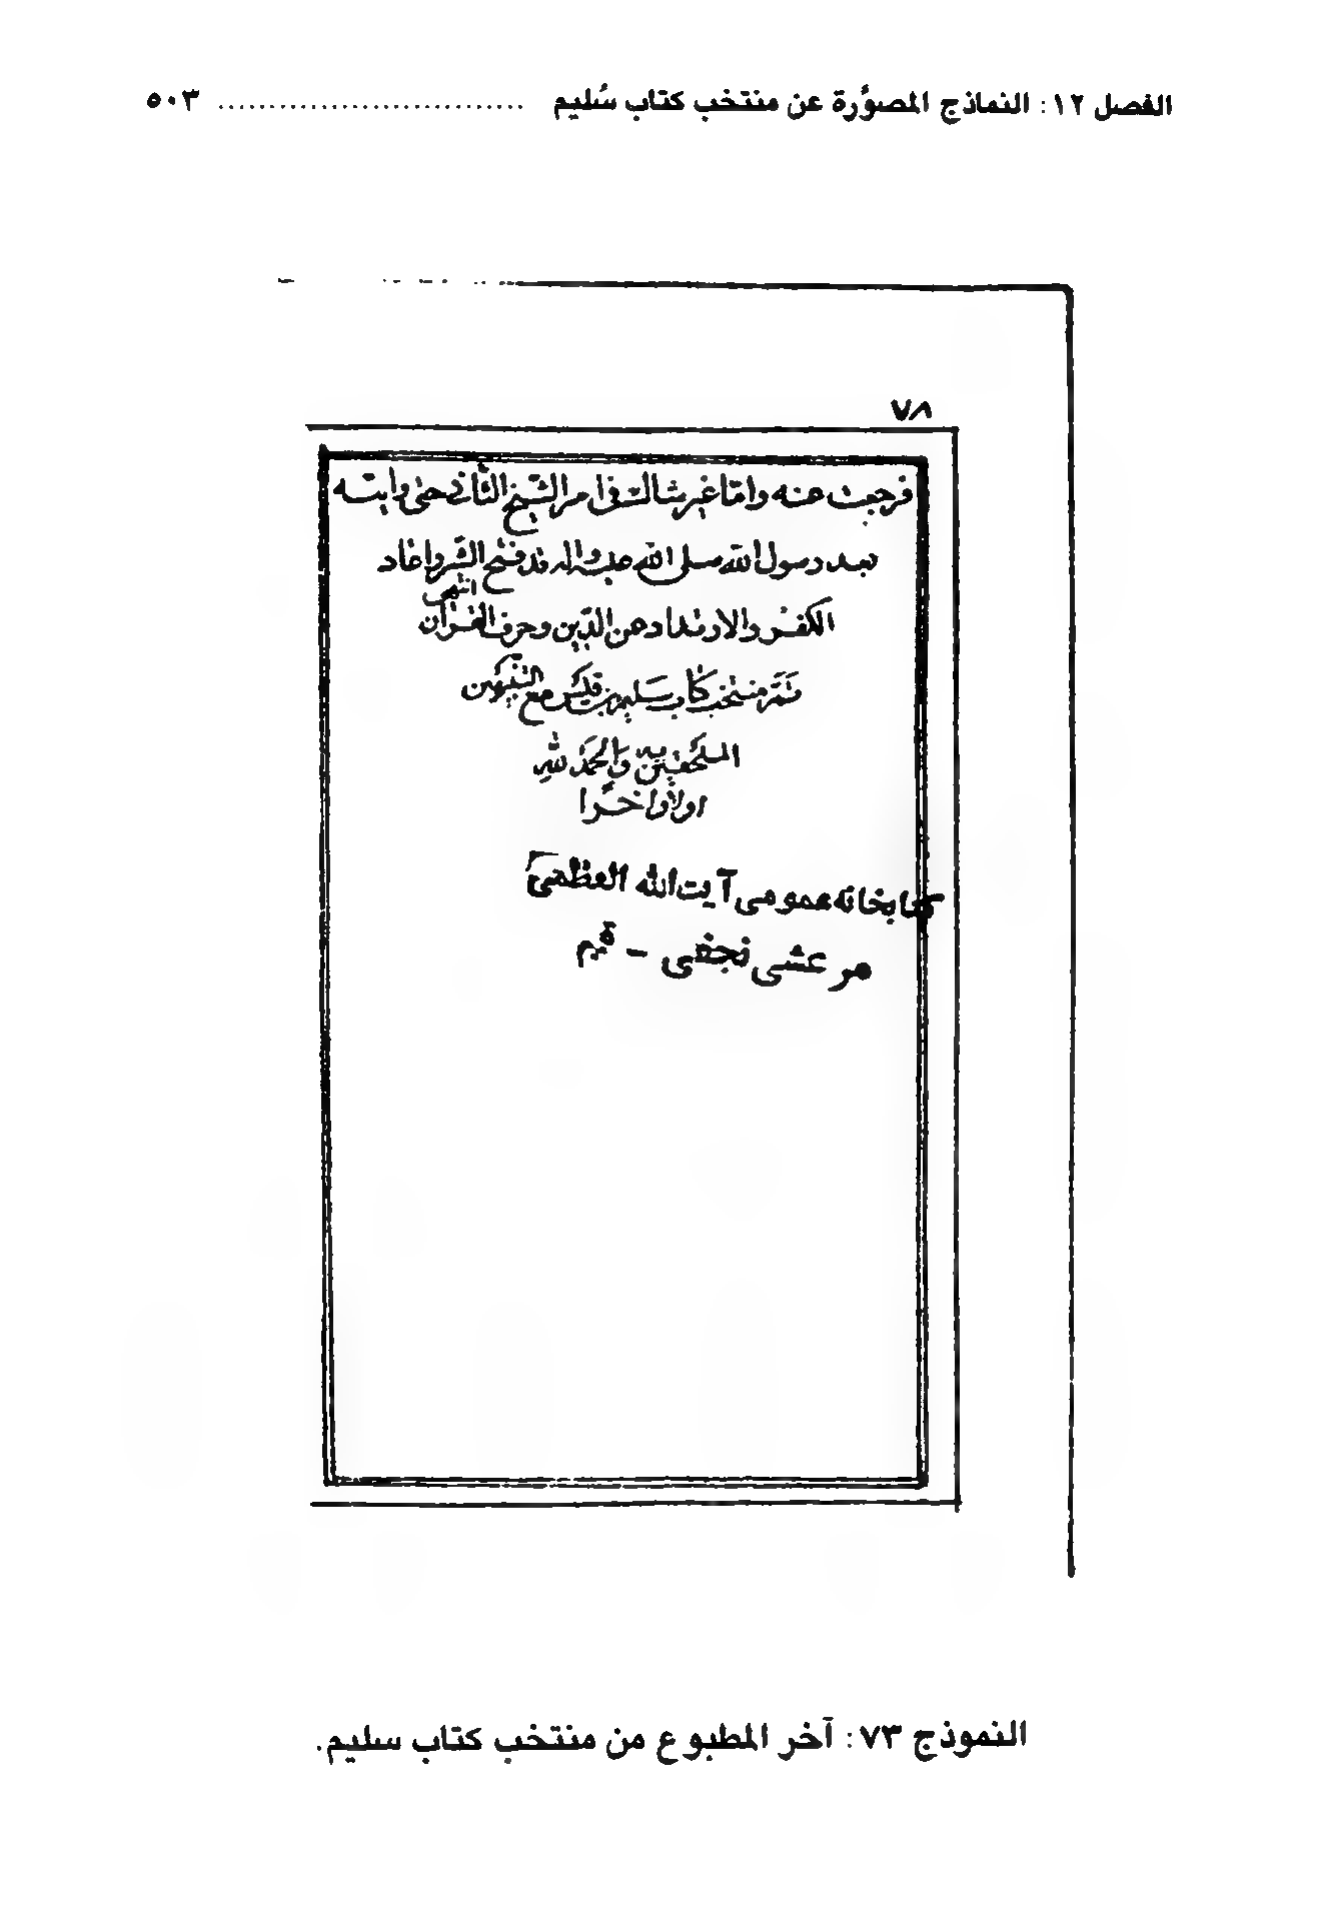 الفصل ١٢: النماذج المصوَّرة عن منتخب كتاب سُليم ............................. ٥٠٣
٧٨
فرجعت عنه واما غير شاك في امر الشيخ الثاني حتى رايته
بعد رسول الله صلى الله عليه واله قد فتح الشر واعاد
الكفر والارتداد عن الدّين وحرف القرآن انتهى
تمّ منتخب كتاب سليم بن قيس مع التنبيهين
الملحقين به والحمد لله
اولا واخرا
كتابخانه عمومى آيت الله العظمى
مرعشى نجفى - قم
النموذج ٧٣: آخر المطبوع من منتخب كتاب سليم.